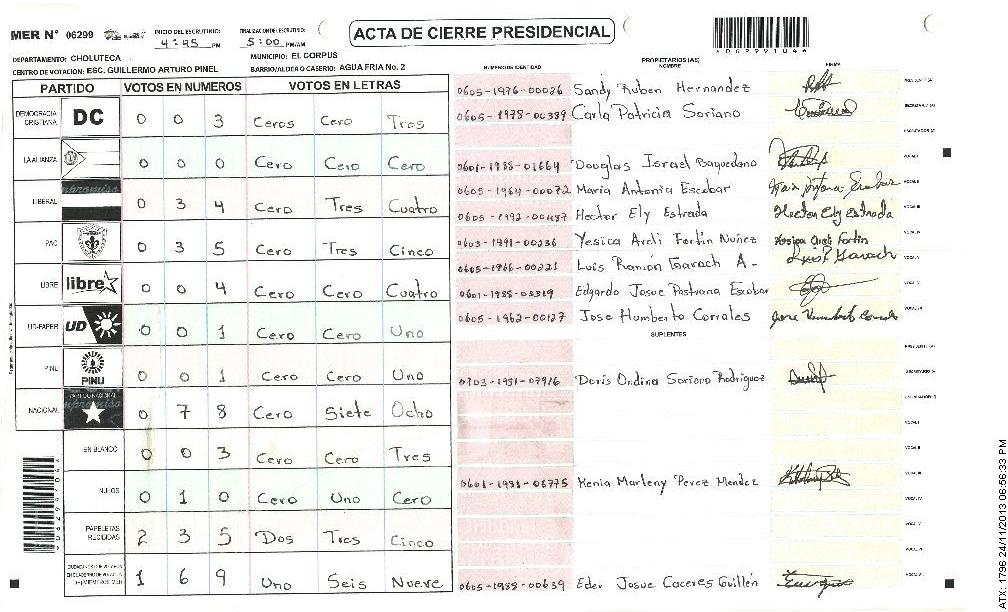 MER N° 06299
INICIO DEL ESCRUTINIO: 4:45 PM
FINALIZACION DE ESCRUTINIO: 5:00 PM/AM
ACTA DE CIERRE PRESIDENCIAL
062991046
DEPARTAMENTO: CHOLUTECA
MUNICIPIO: EL CORPUS
CENTRO DE VOTACION: ESC. GUILLERMO ARTURO PINEL
BARRIO/ALDEA O CASERIO: AGUA FRIA No. 2
PARTIDO VOTOS EN NUMEROS VOTOS EN LETRAS
DEMOCRACIA CRISTIANA DC 0 0 3 Ceros Cero Tres
LA ALIANZA 0 0 0 Cero Cero Cero
LIBERAL 0 3 4 Cero Tres Cuatro
PAC 0 3 5 Cero Tres Cinco
LIBRE libre 0 0 4 Cero Cero Cuatro
UD-FAPER UD 0 0 1 Cero Cero Uno
PINU PINU 0 0 1 Cero Cero Uno
NACIONAL 0 7 8 Cero Siete Ocho
EN BLANCO 0 0 3 Cero Cero Tres
NULOS 0 1 0 Cero Uno Cero
PAPELETAS RECIBIDAS 2 3 5 Dos Tres Cinco
1 6 9 Uno Seis Nueve
NUMERO DE IDENTIDAD PROPIETARIOS (AS) NOMBRE FIRMA
0605-1976-00086 Sandy Ruben Hernandez
0605-1978-00389 Carla Patricia Soriano
0601-1988-01664 Douglas Israel Baquedano
0605-1964-00072 Maria Antonia Escobar
0605-1992-00487 Hector Ely Estrada Hector Ely Estrada
0603-1991-00236 Yesica Areli Fortin Nuñez
0605-1966-00221 Luis Ramón Garach A-
Edgardo Josue Pastrana Escobar
0605-1962-00127 Jose Humberto Corrales
SUPLENTES
0703-1981-07916 Doris Ondina Soriano Rodriguez
0601-1981-06775 Kenia Marleny Perez Mendez
0605-1988-00639 Eder Josue Caceres Guillén
ATX: 1796 24/11/2013 06:56:33 PM